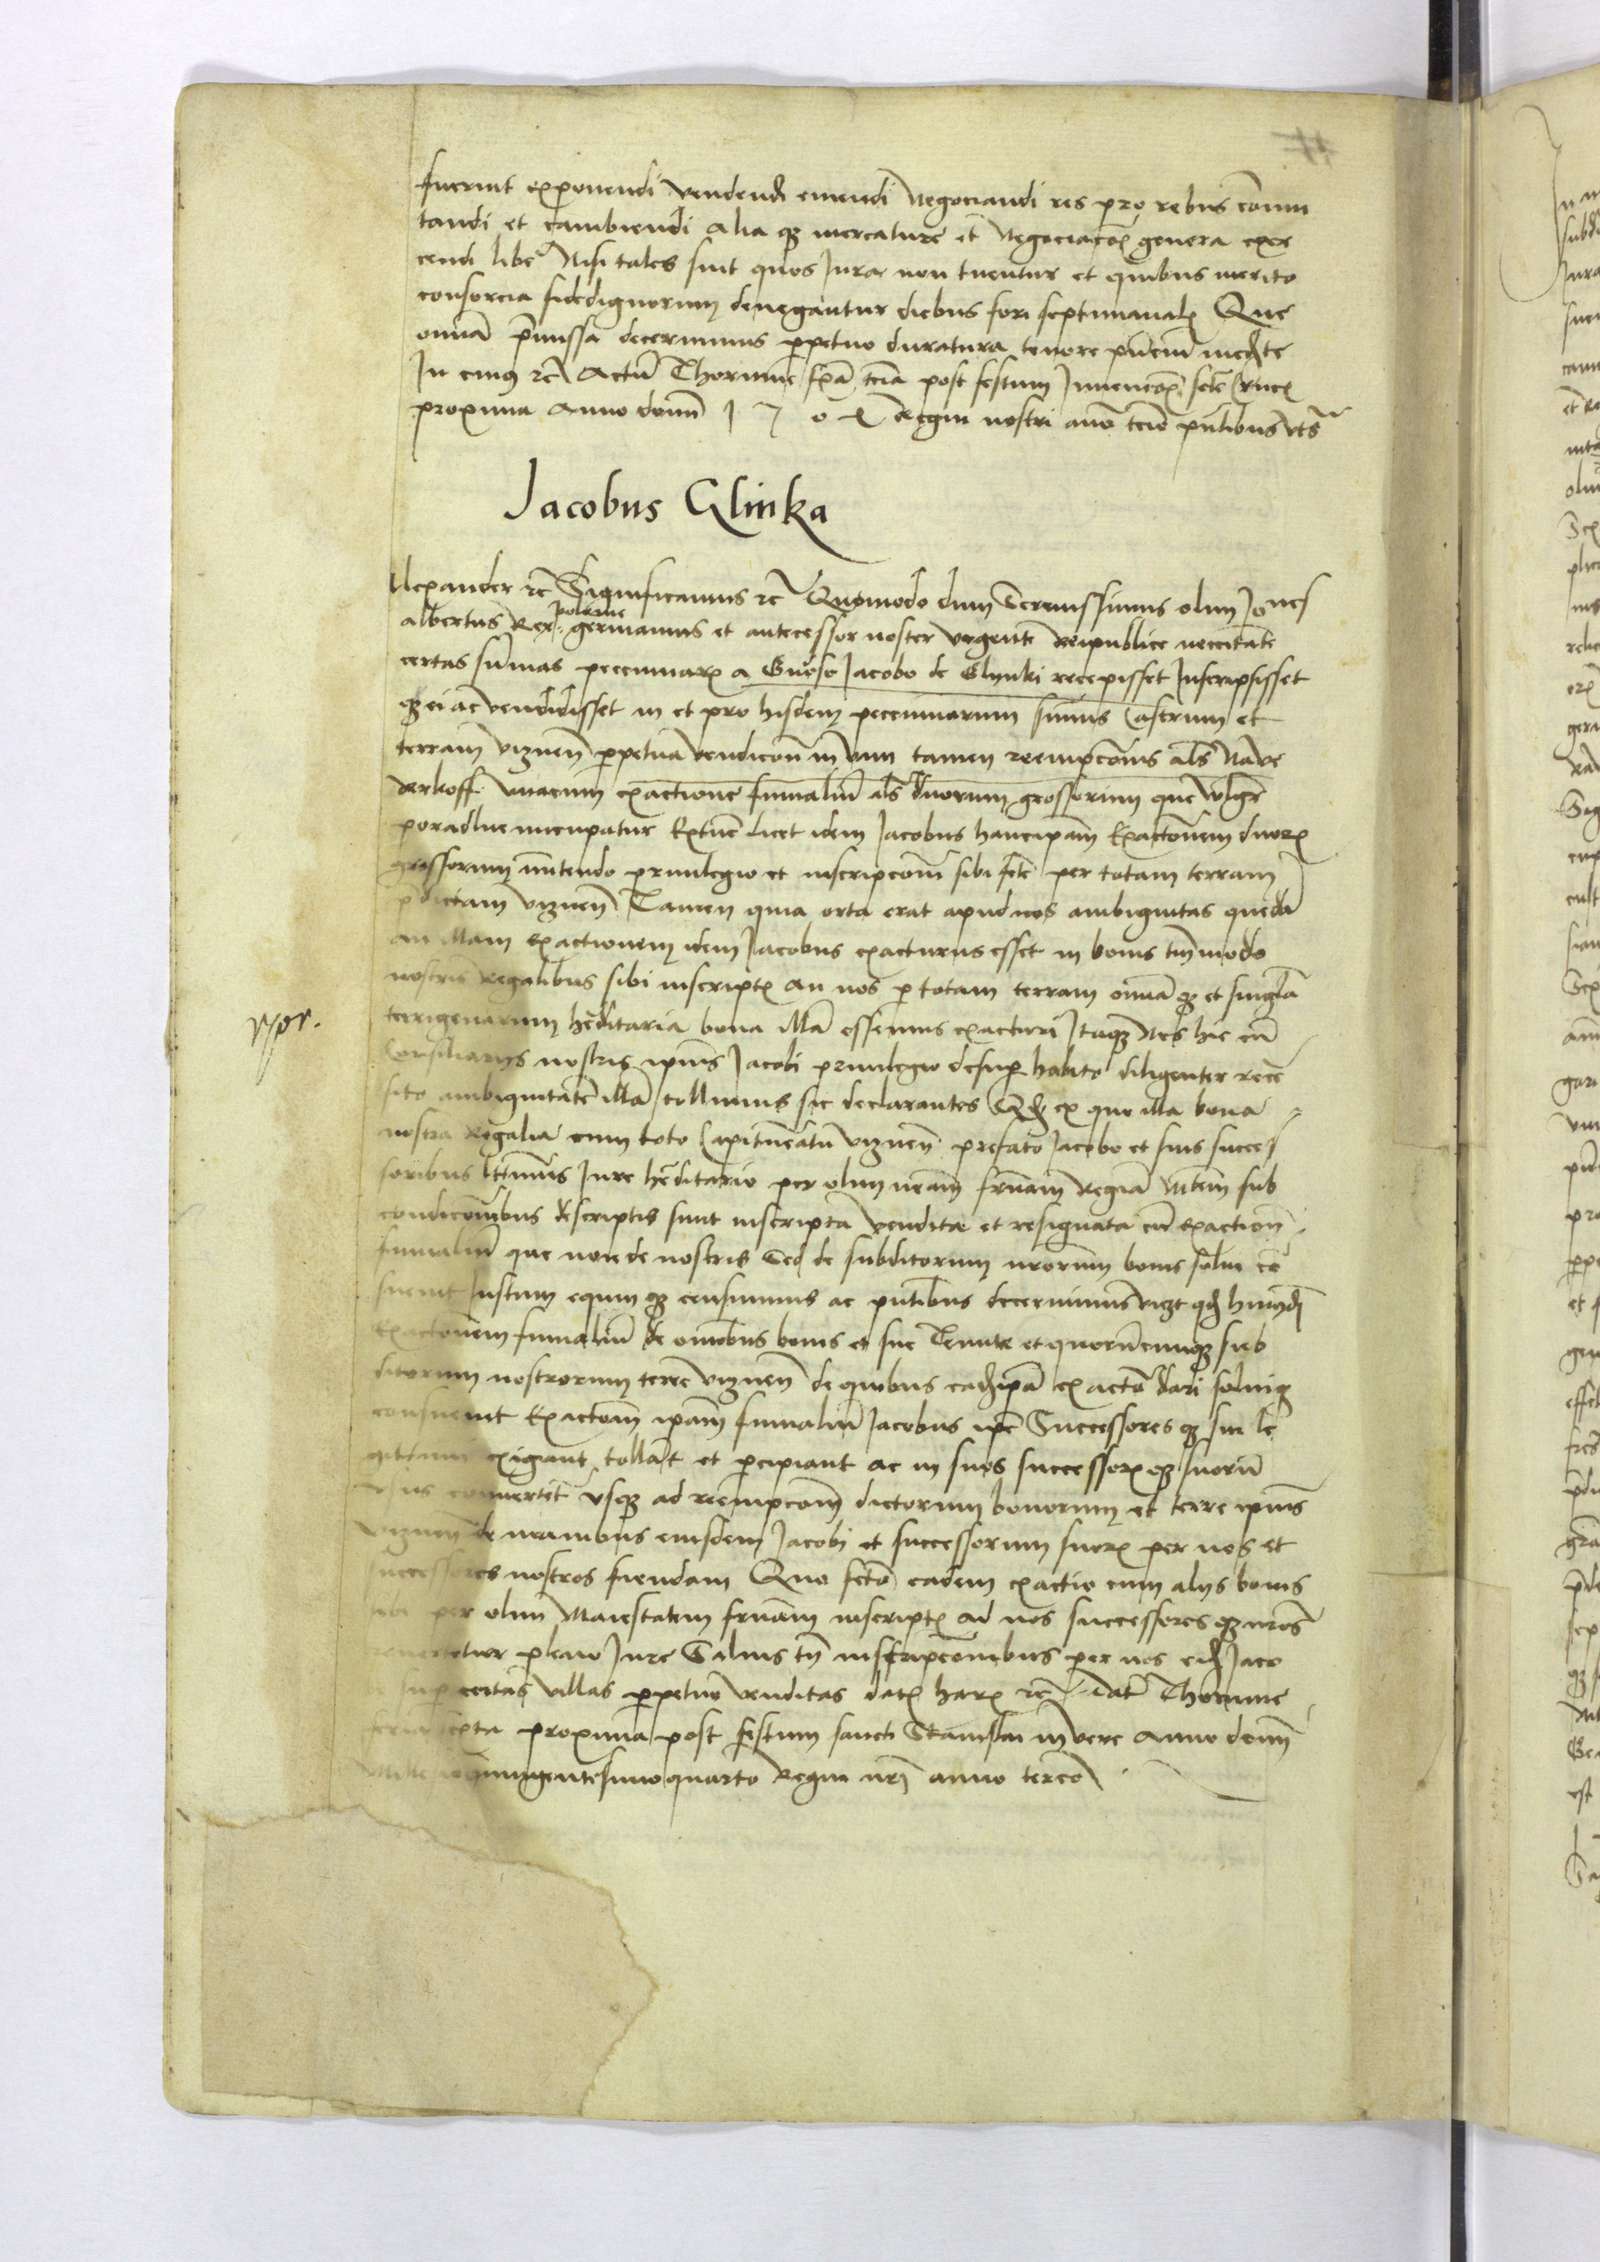 fuerint exponendi vendendi emendi Negociandi res pro rebus comm
tandi et cambiendi Alia qz mercature et Negociacois genera exer
cendi libe Nisi tales sint quos Jura non tuentur et quibus merito
consorcia fidedignorum denegantur diebus fori septimanalis Que
omnia premissa decernimus perpetuo duratura tenore pntium mediante
In cuius rei Actum Thorunie feria tercia post festum Invencois sancte Crucis
proxima Anno domini Regni nostri anno tercio pntibus
Jacobus Glinka
Alexander etc Significamus etc Quomodo dum Serenissimus olim Joanes
albertus Rex polonie germanus et antecessor noster urgente Reipublice necessitate
certas summas pecuniarum a Generoso Jacobo de Glynki recepisset Inscripsisset
qz ei ac vendidisset in et pro hisdem pecuniarum summis Castrum et
terram viznensem perpetua vendicione in vim tamen reempcionis als Na ve
derkoff unacum exactione fumalium als duorum grossorum que vlgr
poradlne nuncupatur Extunc licet idem Jacobus hancipam Exactionem duorum
grossorum innitendo privilegio et inscripcioni sibi facte per totam terram
predictam viznensem Tamen quia orta erat apud nos ambiguitas quedam
an illam exactionem idem Jacobus exacturus esset in bonis tmmodo
nostris Regalibus sibi inscriptis an nos per totam terram omnia qz et singla
terrigenarum hereditaria bona illam essemus exacturi Itaqz Nos hic cum
Consiliariis nostris ipius Jacobi privilegio desuper habito diligenter rece
sito ambiguitatem illam tollimus sic declarantes Qd ex quo illa bona
nostra Regalia cum toto Capitaneatu viznensi prefato Jacobo et suis succes
soribus Jure hereditario per olim Regiam sub
condicionibus descriptis sunt inscripta vendita et resignata cum exactione
fumalium que non de nostris Sed de subditorum nrorum bonis solui con
suevit Justum equum qz censuimus ac pntibus decernimus
Exactionem fumalium de omnibus bonis et sue Tenute et quorumcunqz sub
ditorum nostrorum terre viznensis de quibus eadipa exactio dari soluiqz
consuevit Exactionem ipam fumalium Jacobus ipe Successores qz sui le
gittimi exigant tollant et percipiant ac in suos successorum qz suorum
usus convertent usqz ad reempcionem dictorum bonorum et terre ipius
viznensis de manibus eiusdem Jacobi et successorum suorum per nos et
successores nostros fiendam Quo facto eadem exactio cum aliis bonis
sibi per olim Maiestatem inscriptis ad nos successores qz nros
revertetur pleno Jure Salvis tn inscripcionibus per nos eid Jaco
bo super certas villas perpetuo venditas datis harum etc Dat Thorunie
feria sexta proxima post festum sancti Stanislai in vere Anno domini
Millesimo quingentesimo quarto Regni nri anno tercio